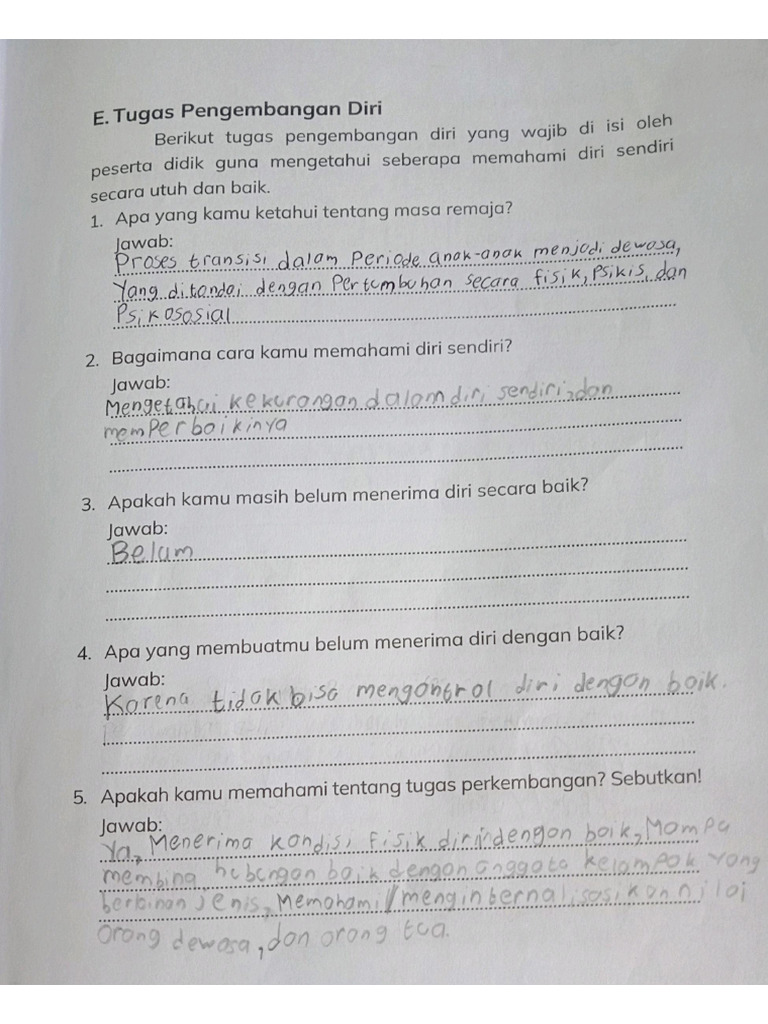 E. Tugas Pengembangan Diri
Berikut tugas pengembangan diri yang wajib di isi oleh
peserta didik guna mengetahui seberapa memahami diri sendiri
secara utuh dan baik.
1. Apa yang kamu ketahui tentang masa remaja?
Jawab:
Proses transisi dalam Periode anak-anak menjadi dewasa,
Yang ditandai dengan Pertumbuhan secara fisik, Psikis, dan
Psikososial
2. Bagaimana cara kamu memahami diri sendiri?
Jawab:
Mengetahui kekurangan dalam diri sendiri, dan
memperbaikinya
3. Apakah kamu masih belum menerima diri secara baik?
Jawab:
Belum
4. Apa yang membuatmu belum menerima diri dengan baik?
Jawab:
Karena tidak bisa mengontrol diri dengan baik.
5. Apakah kamu memahami tentang tugas perkembangan? Sebutkan!
Jawab:
Ya, Menerima kondisi fisik diri dengan baik, Mampu
membina hubungan baik dengan anggota kelompok yang
berlainan jenis, Memahami/menginternalisasikan nilai
orang dewasa, dan orang tua.